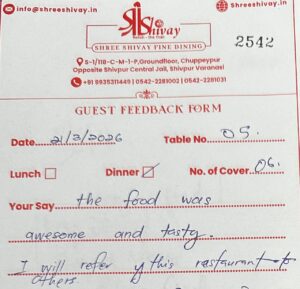 info@shreeshivay.in
Shreeshivay.in
Shivay
SHREE SHIVAY FINE DINING
2542
S-1/118-C-M-1-P,Groundfloor, Chuppeypur
Opposite Shivpur Central Jail, Shivpur Varanasi
+91 9935311449 | 0542-2281002 | 0542-2281031
GUEST FEEDBACK FORM
Date 21/3/2026 Table No. 05.
Lunch Dinner No. of Cover 06.
Your Say the food was
awesome and tasty.
I will refer this restaurant to
others